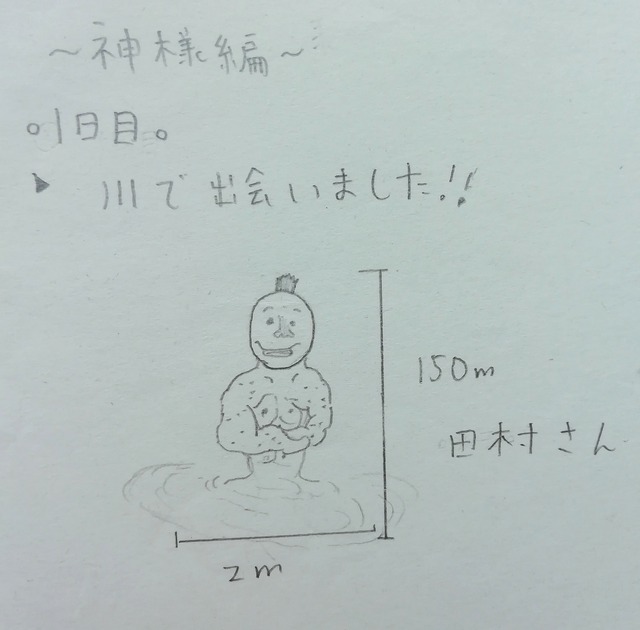 ～神様編～
○1日目。
▶ 川で出会いました!!
150m
田村さん
2m